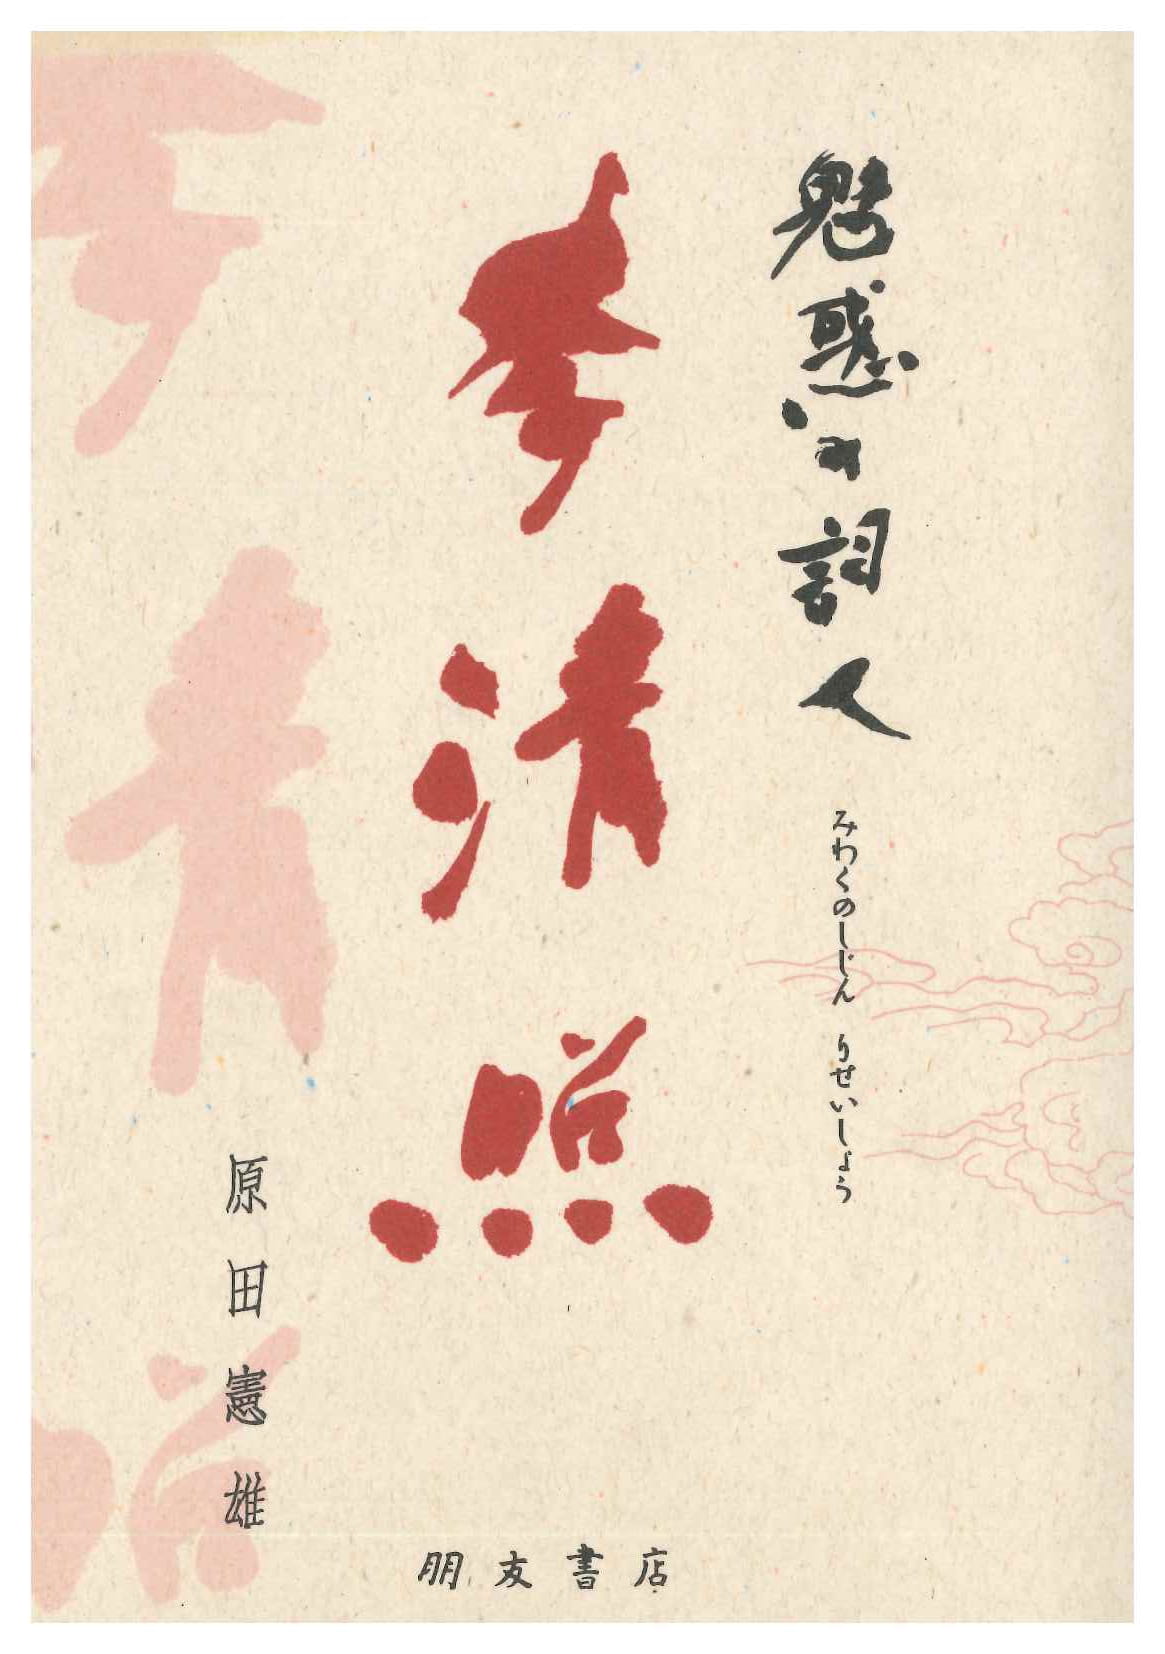 魅惑の詞人
みわくのしじん りせいしょう
李清照
原田憲雄
朋友書店